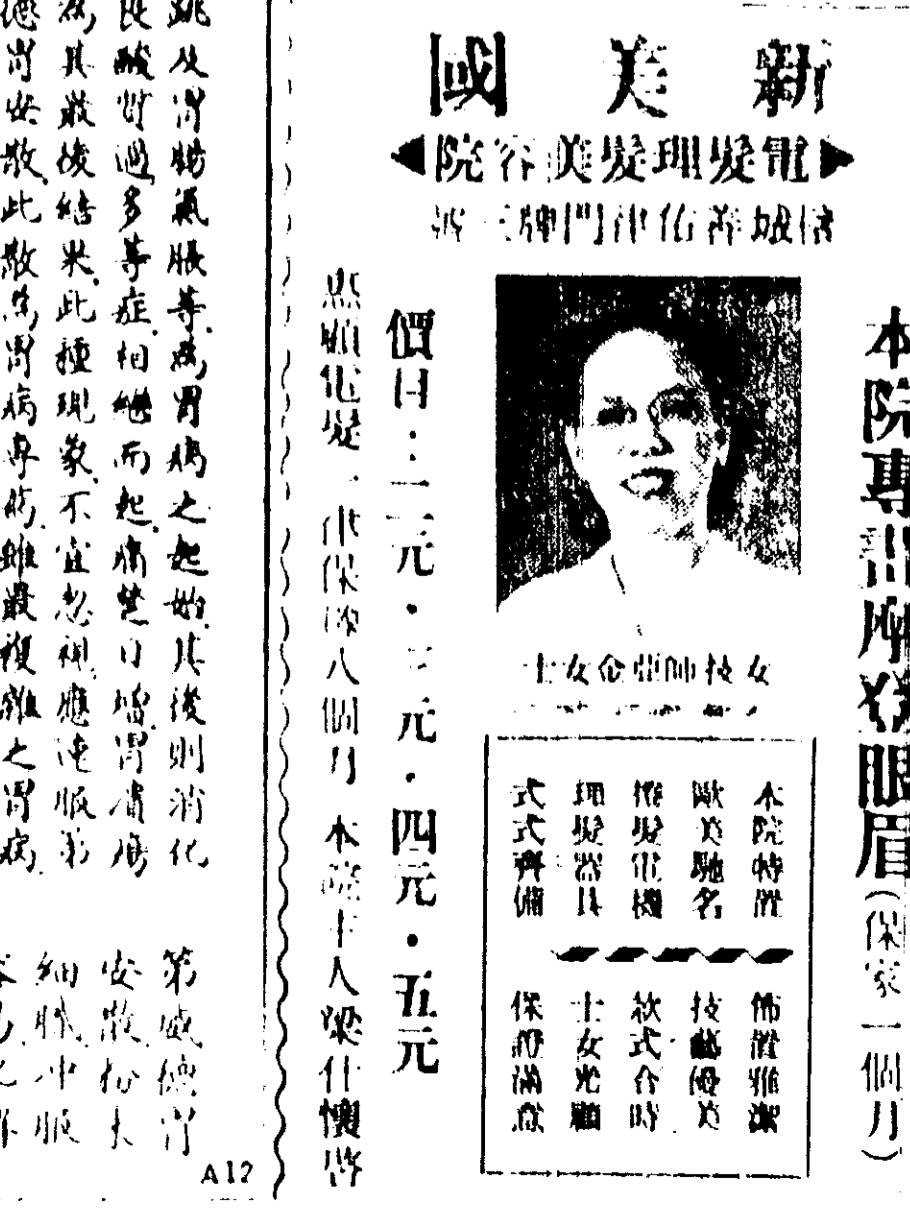 新美國
電髮理髮美容院
本院專畫摩登眼眉(保家一個月)
女技師亞金女士
本院特置
歐美馳名
捲髮電機
理髮器具
式式齊備
佈置雅潔
技藝優美
款式合時
士女光顧
保證滿意
價目:二元・三元・四元・五元
惠顧電髮一律保險八個月 本院主人梁什懷啓
跳及胃腸氣脹等為胃病之起始其後則消化
良酸質過多等症相繼而起痛楚日增胃潰瘍
為其最後結果此種現象不宜忽視應速服第
德胃安散此散為胃病專筋雖最複雜之胃病
第威德胃
安散粉末
細膩冲服
A12